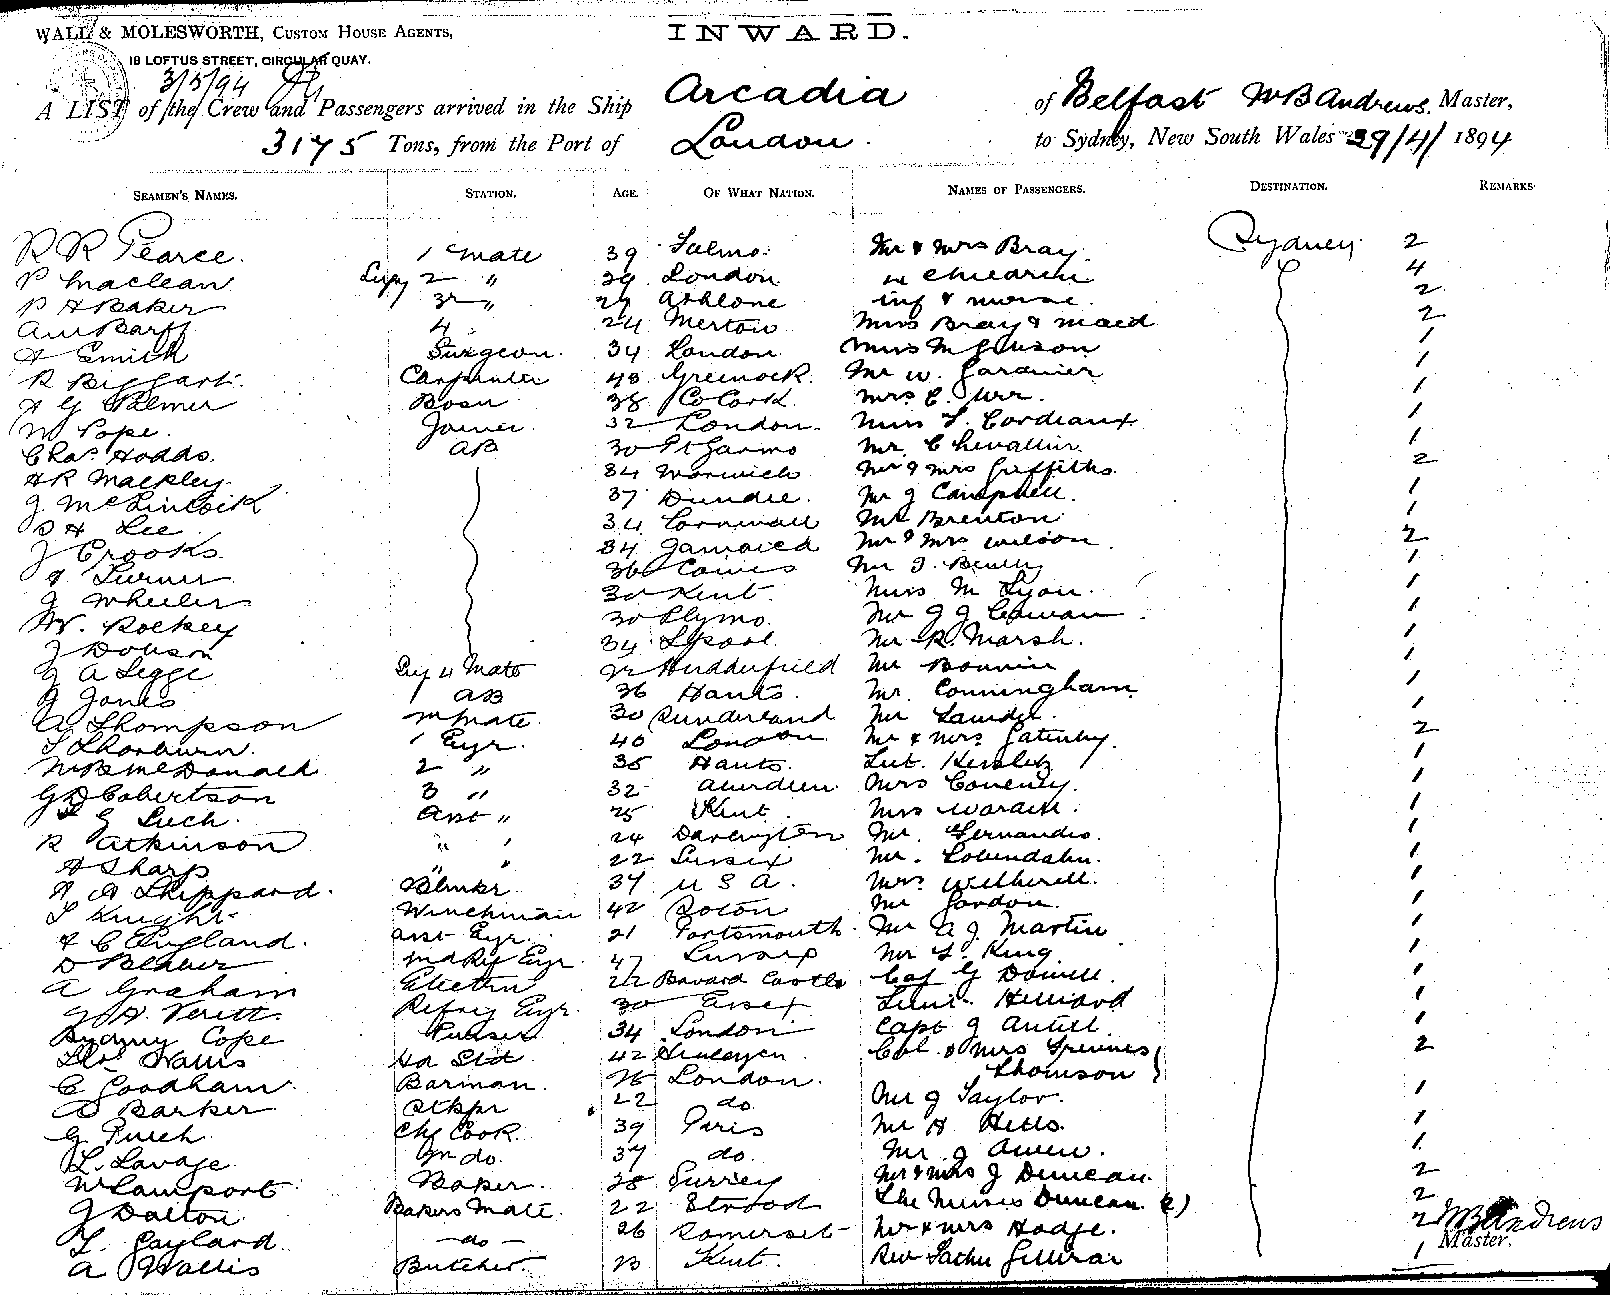 WALL & MOLESWORTH, CUSTOM HOUSE AGENTS,
18 LOFTUS STREET, CIRCULAR QUAY.
INWARD.
3/5/94
A LIST of the Crew and Passengers arrived in the Ship Arcadia of Belfast W B Andrews. Master,
3175 Tons, from the Port of London. to Sydney, New South Wales 29/4/ 1894
SEAMEN'S NAMES. STATION. AGE. OF WHAT NATION. NAMES OF PASSENGERS. DESTINATION. REMARKS
R R Pearce. 1 Mate 39 Mr & Mrs Bray. Sydney 2
P Maclean 2 " 39 London children 4
P H Baker 3r " 29 Athlone inf & nurse. 2
Barff 4 24 Merton Miss Bray & maid 2
H Smith Surgeon. 34 London Miss 1
R Biggart. Carpenter 48 Greenock. Mr W. Gardiner 1
H G Palmer Bosn 38 Co Cork. Mrs C. 1
W Pope. Joiner 32 London. Miss Cordeaux 1
Chas. Hodds. AB 30 Mr. Chevallier 1
H R Mackley. 34 Warwick Mr & Mrs Griffiths 2
J. McLintock 37 Dundee. Mr J Campbell. 1
H Lee 34 Cornwall Mr Brenton 1
J Crooks. 34 Jamaica Mr & Mrs Wilson. 2
J. Turner 36 Cowes Mr 1
J Wheeler 30 Kent. Miss M Lyon. 1
W. Rockey 30 Plymo. Mr J J Cowan 1
J Dobson 34 Lpool. Mr R. Marsh. 1
J A Legge 4 Mate Huddersfield Mr Bonnin 1
G Jones AB 36 Hants. Mr. Conningham 1
A Thompson Mate. 30 Sunderland Mr 1
Thorburn. 1 Engr. 40 London Mr & Mrs Gatenby. 2
McDonald 2 " 35 Hants. Lieut. 1
G D Robertson 3 " 32 Aberdeen Mrs Coveney. 1
Luch. Asst " 25 Kent. Mrs 1
R Atkinson " " 24 Darlington Mr. Fernandes. 1
H Sharp " " 22 Sussex Mr. 1
H A Shippard. 37 U S A. Mrs Witherell. 1
Knight Winchman 42 Mr Gordon. 1
C England. Asst Engr. 21 Portsmouth. Mr A J. Martin 1
D 47 Mr King. 1
A Graham 22 Barnard Castle G Dowell. 1
Refrig Engr. 30 Essex Lieut. Hilliard 1
Sydney Cope Purser 34 London Capt J Antill. 1
Hd Std 42 Col. & Mrs 2
Thomson
C Goodham Barman. 26 London. Mr J Taylor. 1
D Barker 22 do. Mr H Hills. 1
G Chf Cook. 39 Paris Mr J Owen. 1
L. Lavage. do. 37 do.
W Lamport Baker. 28 Surrey Mr & Mrs J Duncan. 2
J Dalton Bakers Mate. 22 Strood The Misses Duncan 2) 2
Gayland. - do - 26 Somerset Mr & Mrs Hodge. 2
A Wallis Butcher. 23 Kent. Rev Father 1
W B Andrews
Master.